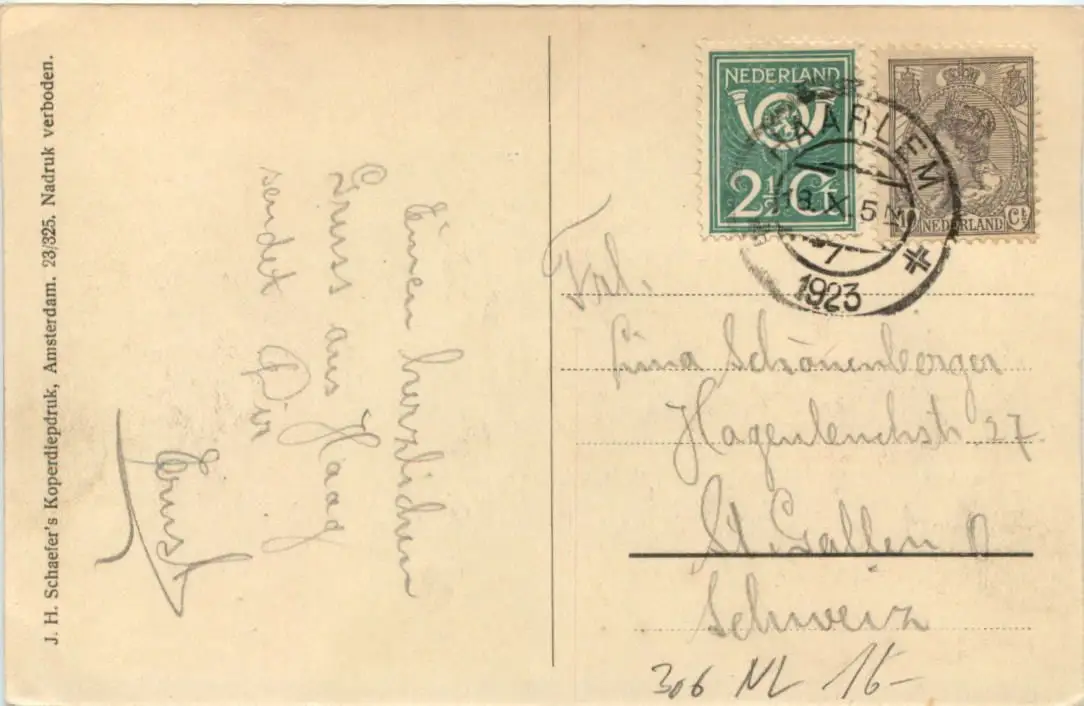 J. H. Schaefer's Koperdiepdruk, Amsterdam. 23/325. Nadruk verboden.
Einen herzlichen
Gruss aus Haag
sendet Dir
Ernst
NEDERLAND
2½ Ct
NEDERLAND Ct
HAARLEM
18.X 5 N
7
1923
Frl.
Lina Schönenberger
27
St. Gallen O
Schweiz
306 NL 15-